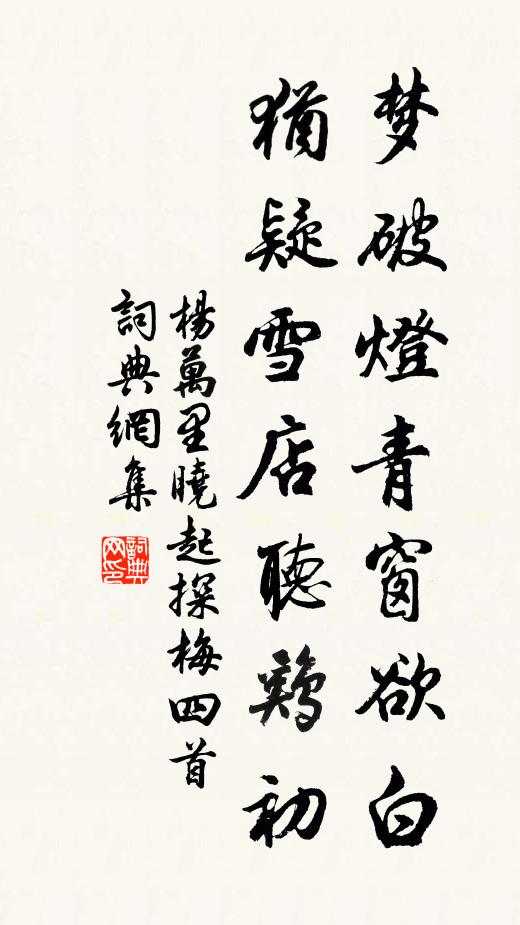 梦破燈青窗欲白
猶疑雪店聽鷄初
楊萬里曉起探梅四首
詞典網集
詞典
网印